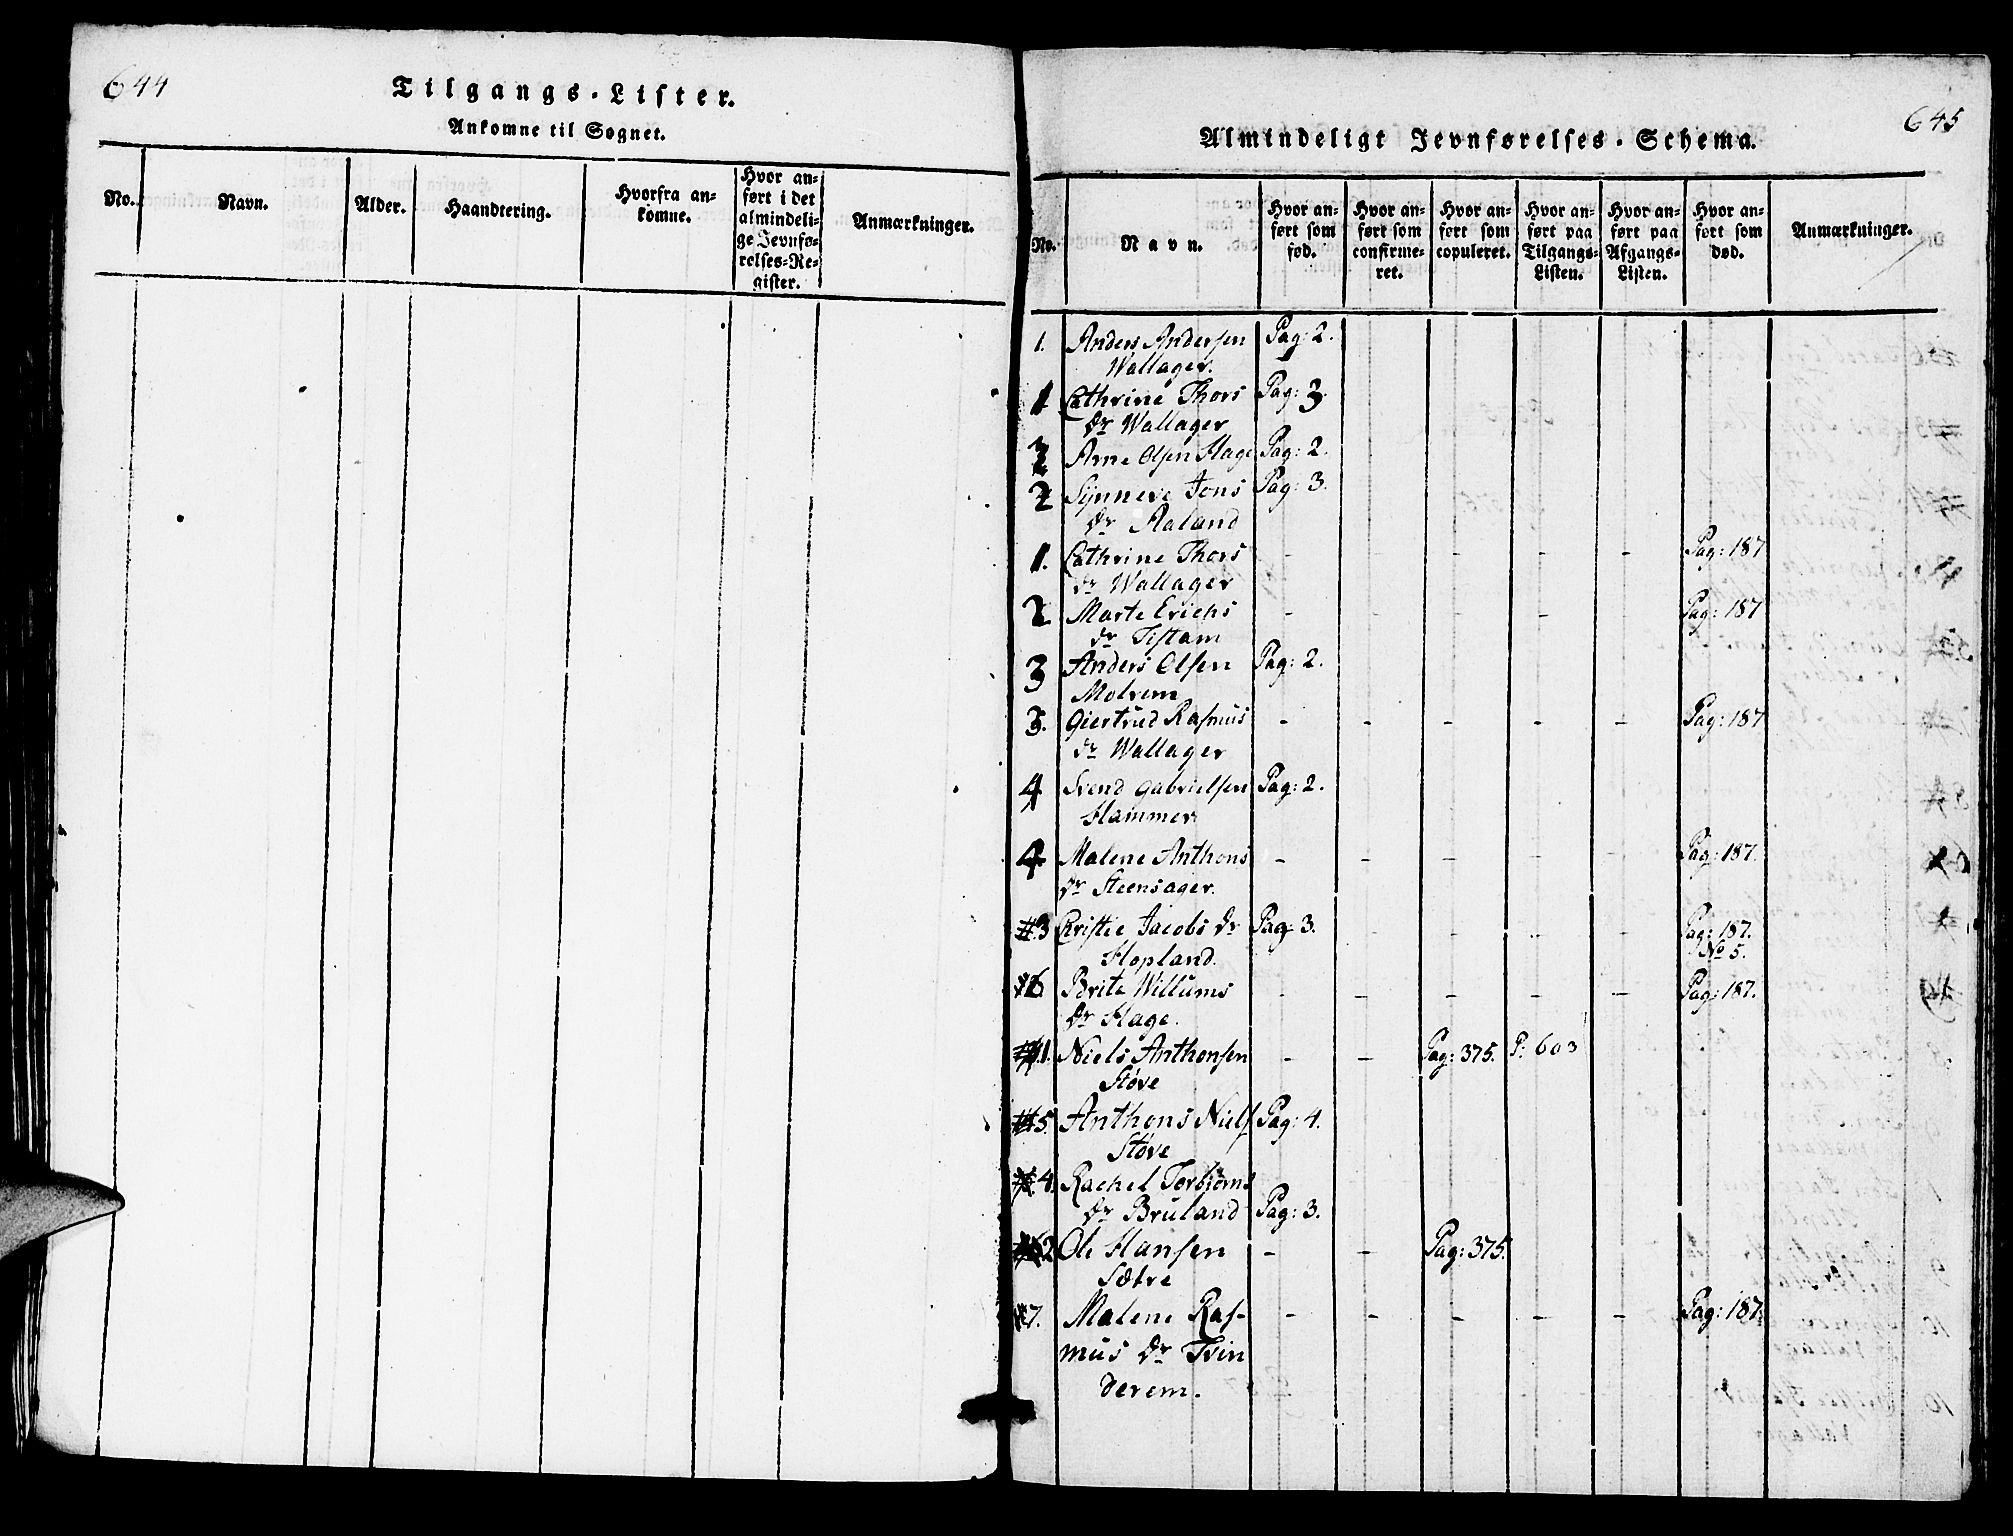 644
Tilgangs-Lister.
Ankomne til Sognet.
No.
Navn.
Alder.
Haandtering.
Hvorfra an-
komne.
Hvor an-
ført i det
almindeli-
ge Jevnfø-
relses-Re-
gister.
Anmærkninger.
645
Almindeligt Jevnførelses-Schema.
No.
Navn.
Hvor an-
ført som
fød.
Hvor an-
ført som
confirme-
ret.
Hvor an-
ført som
copuleret.
Hvor an-
ført paa
Tilgangs-
Listen.
Hvor an-
ført paa
Afgangs-
Listen.
Hvor an-
ført som
død.
Anmærkninger.
1. Anders Andersen Pag: 2.
Wallager.
1 Cathrine Thors Pag: 3.
Dr Wallager
Arne Olsen Hage Pag: 2.
2 Synneve Jons Pag: 3.
Dr Aaland
1. Cathrine Thors - - - - - Pag: 187
dr Wallager
2 Marte Erichs - - - - Pag: 187
dr Tistam
3 Anders Olsen Pag: 2.
Molrem
3. Giertrud Rasmus - - - - - Pag: 187
dr Wallager
4 Svend Gabrielsen Pag: 2.
Hammer
4 Malene Anthons - - - - - Pag: 187.
dr Steensager.
3 Cristie Jacobs dr Pag: 3. - - - - Pag: 187.
Hopland. No 5.
6 Brite Willums - - - - - Pag: 187.
Dr Hage.
1. Niels Anthonsen - - Pag: 375. P: 603
Støve
5. Anthons Niels Pag: 4.
Støve
4. Rachel Torbiørns
Dr Bruland Pag: 3.
2 Ole Hansen - - Pag: 375.
Sætre
7. Malene Ras- - - - - - Pag: 187.
mus Dr Tvin
derem.